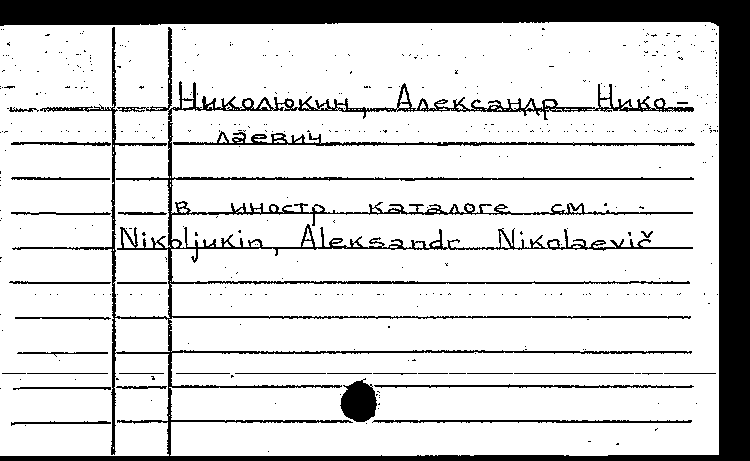 Николюкин, Александр Нико-
лаевич
в иностр. каталоге см.:
Nikoljukin, Aleksandr Nikolaevič